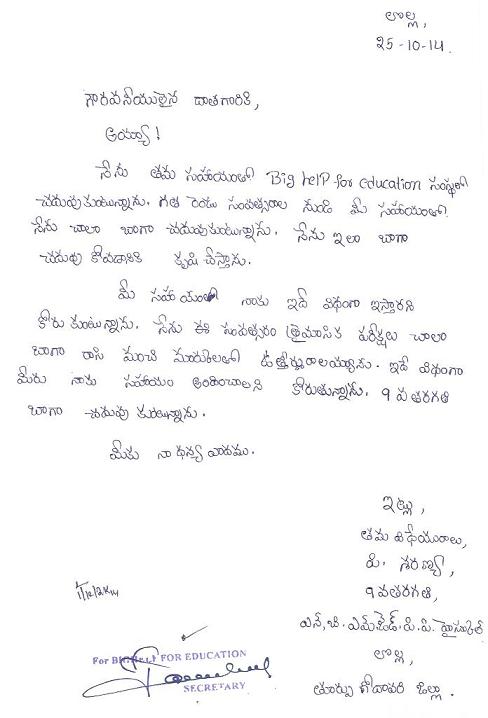 లొల్ల,
25-10-14.
గౌరవనీయులైన దాతగారికి,
అయ్యా!
నేను తమ సహాయంతో Big help for education సంస్థలో
చదువుకుంటున్నాను. గత రెండు సంవత్సరాల నుండి మీ సహాయంతో
నేను చాలా బాగా చదువుకుంటున్నాను. నేను ఇలా బాగా
చదువు కోవడానికి కృషి చేస్తాను.
మీ సహాయంతో నాకు ఇదే విధంగా ఇస్తారని
కోరు కుంటున్నాను. నేను ఈ సంవత్సరం త్రైమాసిక పరీక్షలు చాలా
బాగా రాసి మంచి మార్కులతో ఉత్తీర్ణురాలయ్యాను. ఇదే విధంగా
మీరు నాకు సహాయం అందించాలని కోరుతున్నాను. 9 వతరగతి
బాగా చదువు కుంటున్నాను.
మీకు నా ధన్య వాదము.
ఇట్లు,
తమ విధేయురాలు,
పి. శరణ్య,
9 వతరగతి,
ఎన్.బి.ఎమ్.జెడ్.పి.పి. హైస్కూల్
లొల్ల,
తూర్పు గోదావరి జిల్లా.
For BIG HELP FOR EDUCATION
SECRETARY